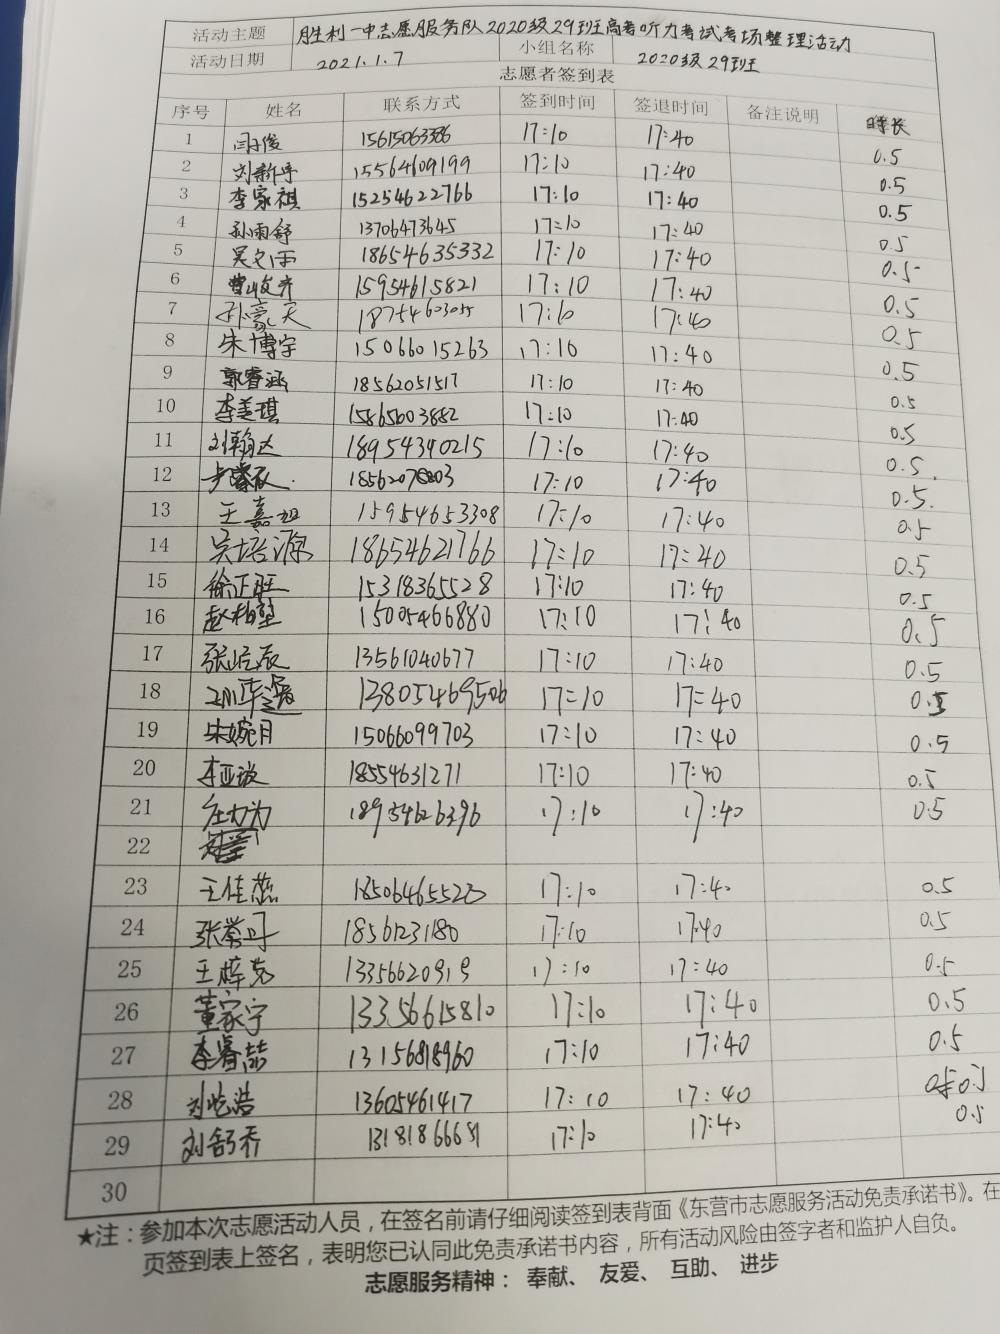 活动主题 胜利一中志愿服务队2020级29班高考听力考试考场整理活动
活动日期 2021.1.7 小组名称 2020级29班
志愿者签到表
序号 姓名 联系方式 签到时间 签退时间 备注说明 时长
1 闫子俊 17:10 17:40 0.5
2 刘新宇 15564609199 17:10 17:40 0.5
3 李家祺 15254622766 17:10 17:40 0.5
4 孙雨舒 13706473645 17:10 17:40 0.5
5 吴文雨 18654635332 17:10 17:40 0.5
6 15954615821 17:10 17:40 0.5
7 孙豪天 18754603055 17:10 17:40 0.5
8 朱博宇 15066015263 17:10 17:40 0.5
9 郭睿涵 18562051517 17:10 17:40 0.5
10 李美琪 15865603882 17:10 17:40 0.5
11 刘瀚达 18954340215 17:10 17:40 0.5
12 17:10 17:40 0.5
13 王嘉旭 15954653308 17:10 17:40 0.5
14 吴培源 18654621766 17:10 17:40 0.5
15 徐正旺 15318365528 17:10 17:40 0.5
16 赵柏堃 15005466880 17:10 17:40 0.5
17 张皓辰 13561040677 17:10 17:40 0.5
18 13805469506 17:10 17:40 0.5
19 朱婉月 15066099703 17:10 17:40 0.5
20 李亚璇 18554631271 17:10 17:40 0.5
21 庄力为 18954626396 17:10 17:40 0.5
22
23 王佳蕊 18506465523 17:10 17:40 0.5
24 张蓉丹 18561231180 17:10 17:40 0.5
25 王梓克 13356620919 17:10 17:40 0.5
26 董家宁 13356615810 17:10 17:40 0.5
27 李睿喆 13156818960 17:10 17:40 0.5
28 刘屹浩 13605461417 17:10 17:40 0.5
29 刘舒乔 13181866681 17:10 17:40 0.5
30
★注：参加本次志愿活动人员，在签名前请仔细阅读签到表背面《东营市志愿服务活动免责承诺书》。在
页签到表上签名，表明您已认同此免责承诺书内容，所有活动风险由签字者和监护人自负。
志愿服务精神：奉献、友爱、互助、进步